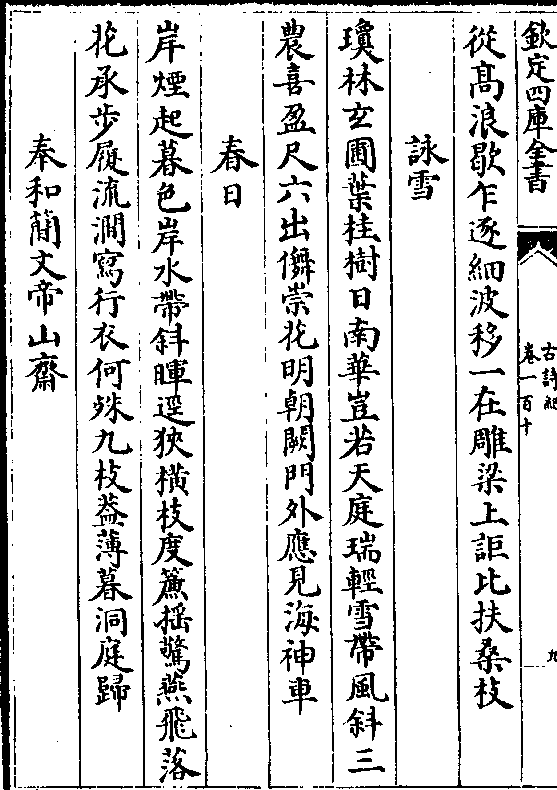 欽定四庫全書
古詩紀
卷一百十
九
從髙浪歇乍逐細波移一在雕梁上詎比扶桑枝
詠雪
瓊林玄圃葉桂樹日南華豈若天庭瑞輕雪帶風斜三
農喜盈尺六出儛崇花明朝闕門外應見海神車
春日
岸煙起暮色岸水帶斜暉逕狹橫枝度簾搖驚燕飛落
花承步履流澗寫行衣何殊九枝葢薄暮洞庭歸
奉和簡文帝山齋